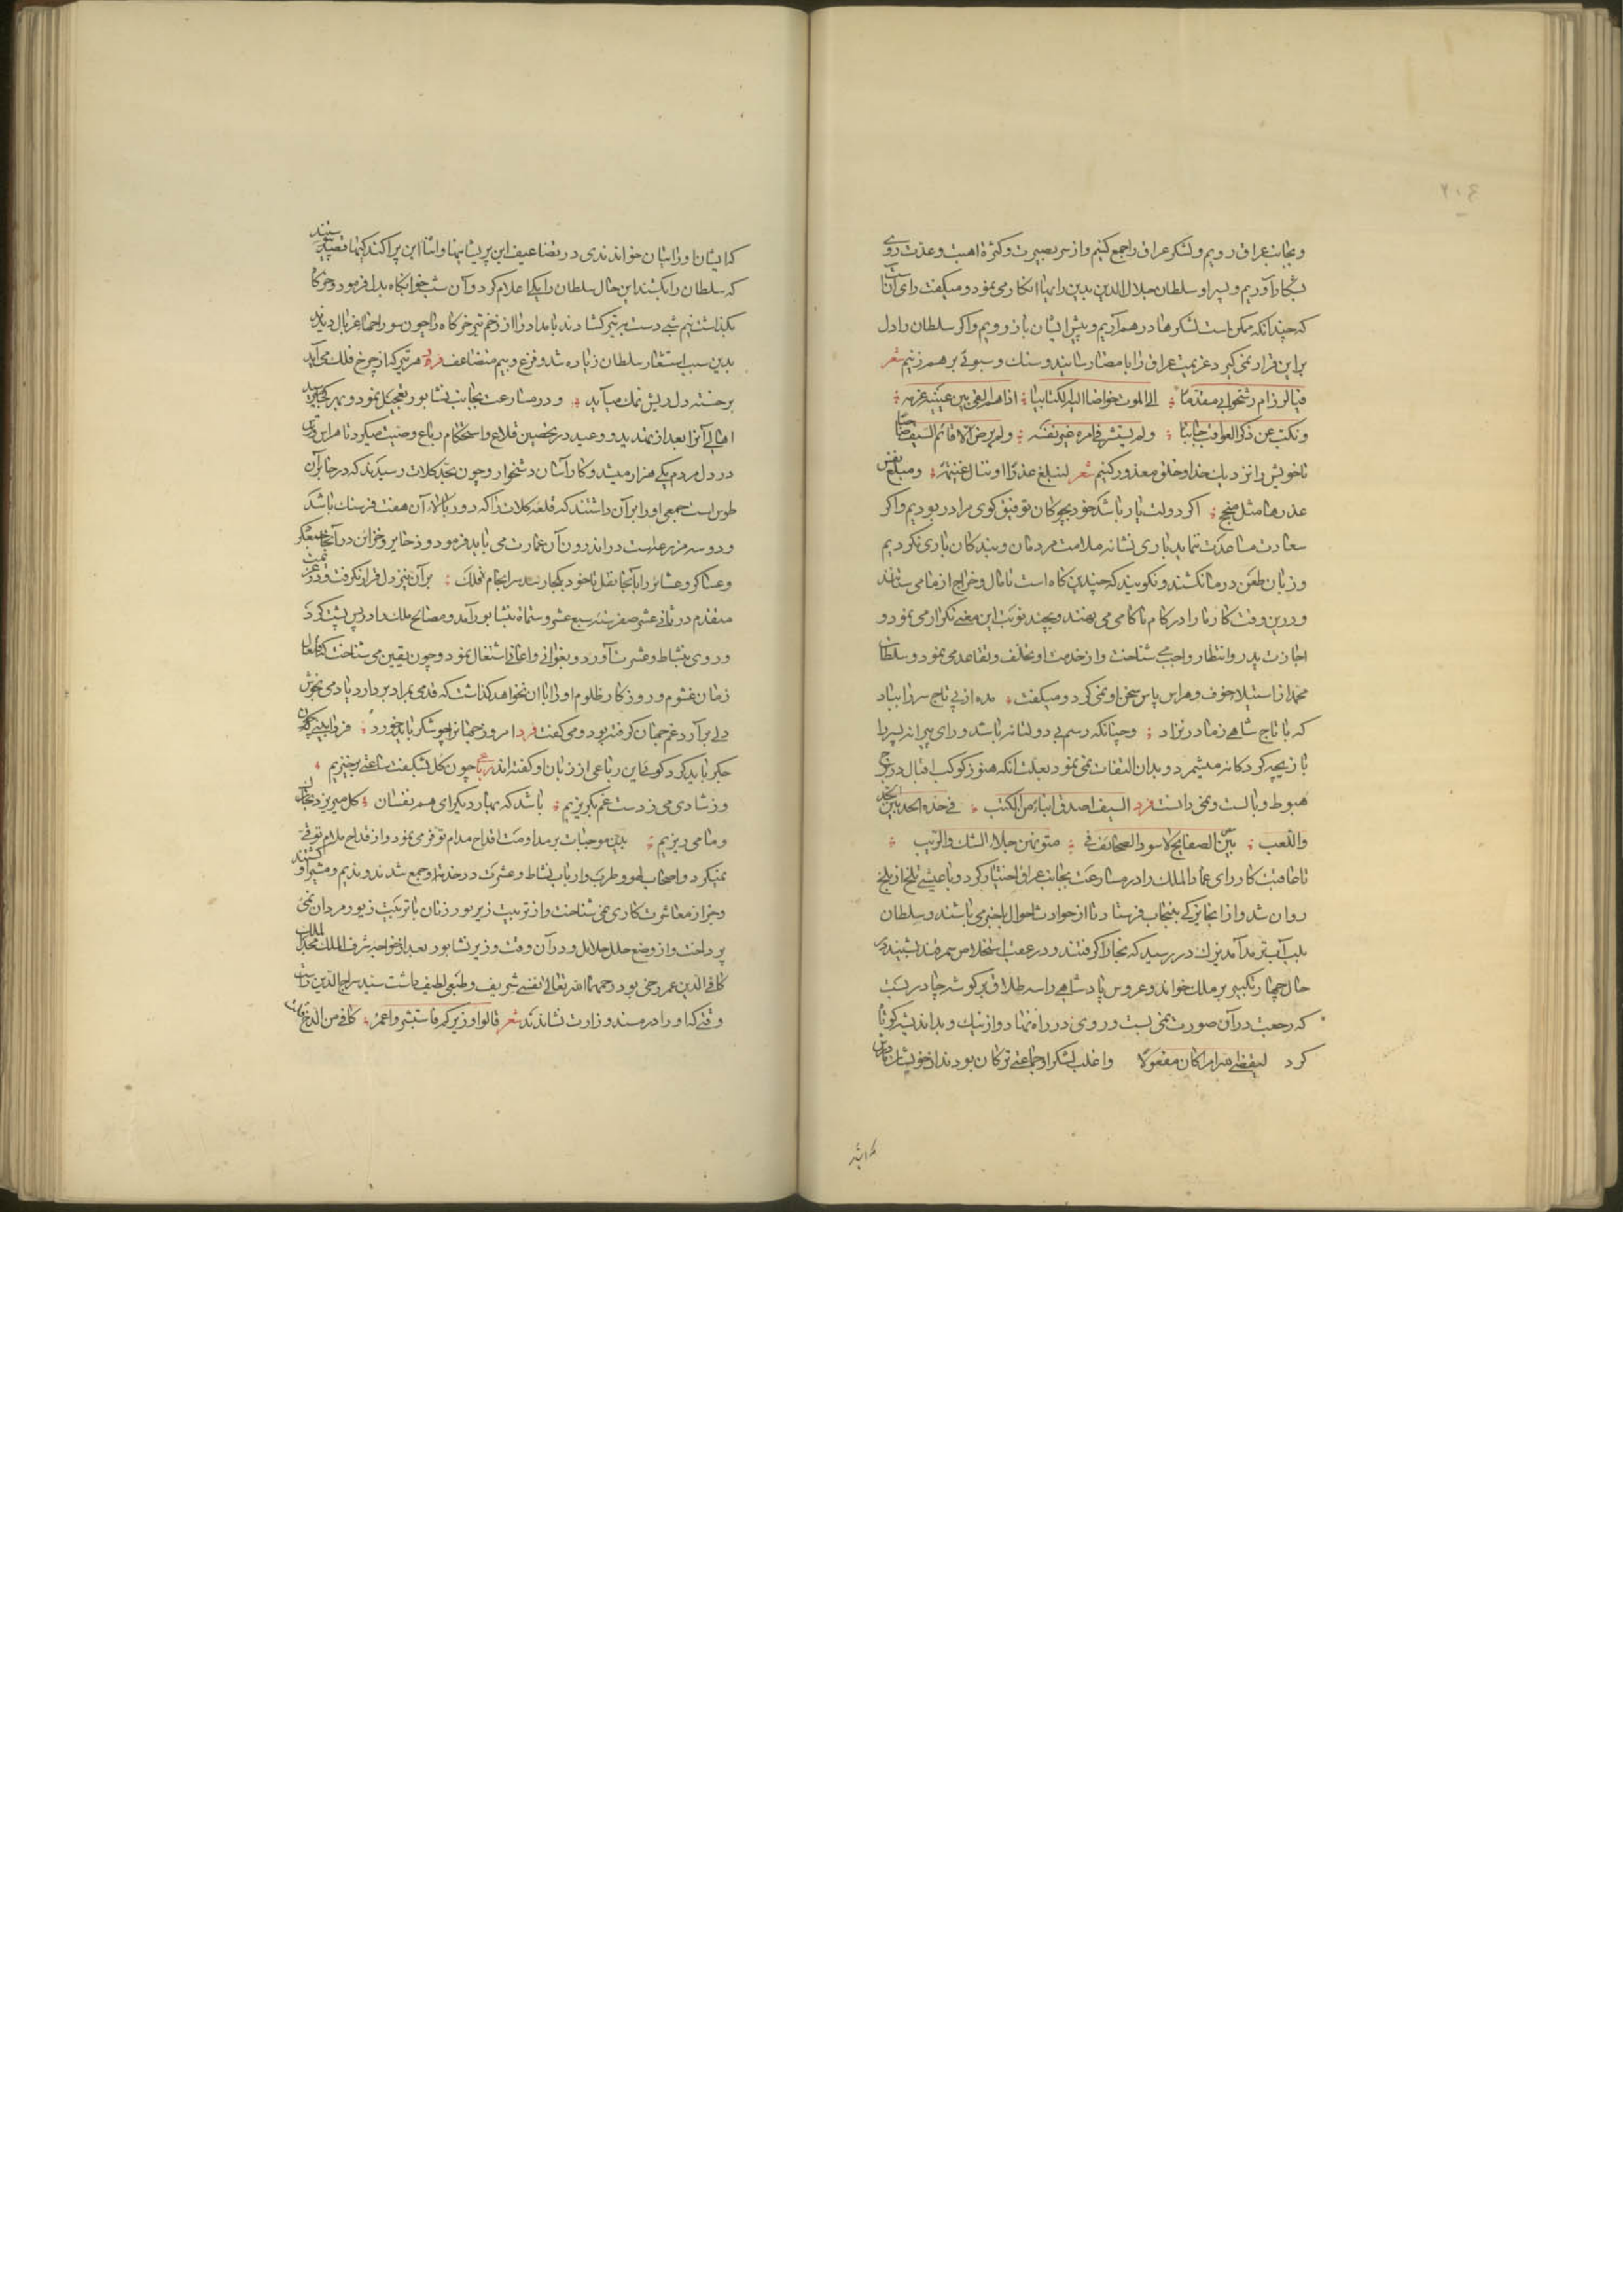 ۲۱۴
وبجانب عراق رویم ولشکر عراق را جمع کنیم واز سر بصیرت وکثرة اهبت وعدّت روی
بکار آوریم وپسر او سلطان جلال‌الدین بدین رایها انکار می نمود ومیکفت رای آنست
که چندانکه ممکن است لشکرها در هم آریم وپیش ایشان باز رویم واکر سلطان را دل
بر این قرار نمی کیرد عزیمت عراق را بامضا رسانید وسنك وسبوئی بر هم زنیم شعر
فیالرزام رشحوا بی مقدّماً الی الموت خواضا الیه الکتائبا اذا هم القی بین عینیه عزمه
ونکّب عن ذکر العواقب جانبا ولم یستشر فی امره غیر نفسه ولم یرض الا قائم السیف صاحبا
تا خویش را نزدیك خدا وخلق معذور کنیم شعر لنبلغ عذرًا او ننال غنیمة ومبلغ نفس
عذرها مثل منجح اکر دولت یار باشد خود بچوکان توفیق کوی مراد ربودیم واکر
سعادت مساعدت ننماید باری نشانه ملامت مردمان وبندکان باری نکردیم
وزبان طعن در ما نکشند ونکویند که چندین کاه است تا مال وخراج از ما می ستانند
ودرین وقت کار ما را در کام ناکامی می نهند وبچند نوبت این معنی تکرار می نمود و
اجازت پدر وانتظار واجب می شناخت واز خدمت او تخلف وتقاعد می نمود وسلطان
محمد از استیلاء خوف وهراس پاس سخن او نمی کرد ومیکفت مده از پی تاج سر را بباد
که با تاج شاهی ز مادر نزاد وچنانکه رسم بی دولتانه باشد ورای پیرانه پسر را
بازیچه کودکانه میشمرد وبدان التفات نمی نمود بعلت آنکه هنوز کوکب اقبال در برج
هبوط وبالست ونمی دانست فرد السیف اصدق انباءً من الکتب فی حدّه الحد بین الجد
واللعب بیض الصفایح لا سود الصحائف فی متونهن جلاء الشك والریب
تا عاقبت کار رای عماد الملك را در مسارعت بجانب عراق اختیار کرد وبا عیشی تلخ از بلخ
روان شد واز انجا یزکی به پنجاب فرستاد تا از حوادث احوال با خبر می باشند وسلطان
بلب آب ترمد آمد یزك در رسید که بخارا کرفتند ودر عقب استخلاص سمرقند بشنید در
حال چهار تکبیر بر ملك خواند وعروس پادشاهی را سه طلاق بر کوشه چادر بست
که رجعت در آن صورت نمی بست وروی در راه نهاد واز نیك وبد اندیشه کوتاه
کرد لیقضی الله امرا کان مفعولاً واغلب لشکر او جماعتی ترکان بودند از خویشان مادرش
که ایشان
که ایشان اورانیان خواندندی در تضاعیف این پریشانیها واثناء این پراکندکیها
که سلطان را بکشند این حال سلطان را یکی اعلام کرد وآن شب خوابکاه بدل فرمود وخرکاه
بکذاشت نیم شبی دست بر تیر کشادند بامداد را از زخم تیر خرکاه را چون سوراخهاء غربال دیدند
بدین سبب استشعار سلطان زیاده شد وفزع وبیم متضاعف فرد هر تیر که از چرخ فلك می آید
بر خسته دل ریش نمك می آید ودر مسارعت بجانب نشابور تعجیل نمود وبهر کجا میرسید
اهالی آنرا بعد از تهدید ووعید در تحصین قلاع واستحکام رباع وصیت میکرد تا هراس وترس
در دل مردم یکی هزار میشد وکار آسان دشخوار وچون بحد کلات رسیدند که در جانب آن
طوس است جمعی او را بر آن داشتند که قلعه کلات را که دور بالاء آن هفت فرسنك باشد
ودو سه مزرعه است در اندرون آن عمارت می باید فرمود وذخایر وخزائن در آنجا جمع کرد
وعساکر وعشایر را بآنجا نقل تا خود بکجا رسد سر انجام فلك بر آن نیز دل قرار نکرفت ودر
متقدم در ثانی عشر صفر سنه سبع عشر وستمائه بنشابور آمد ومصالح ملك را در پس پشت کرد
وروی بنشاط وعشرت آورد وبغوانی واغانی اشتغال نمود وچون بیقین می شناخت که
زمان غشوم وروزکار ظلوم او را با آن نخواهد کذاشت که قدمی بمراد بردارد یا دمی بخوش
دلی بر آرد غم جهان کرفته بود ومی کفت فرد امروز جهان را چو شکر باید خورد فردا ببینی که
جکر باید کرد کوئی این رباعی از زبان او کفته اند رباعی چون کل بشکفت ساعتی برخیزیم
وز شادی می ز دست غم بکریزیم باشد که بهار دیکر ای هم نفسان کل میریزد
وما می ریزیم بدین موجبات بر مداومت اقداح مدام توفر می نمود واز قداح ملام توقی
نمیکرد واصحاب لهو وطرب وارباب نشاط وعشرت در خدمت او جمع شدند وندیم ومشیر او کشتند
وجز از معاشرت کاری نمی شناخت واز ترتیب زیور زنان با تربیت زیور مردان نمی
پرداخت واز وضع حلل وحلائل ودر آن وقت وزیر نشابور بعد از خواجه شرف الملك مجد الملك
کافی الدین عمر رخی بود رحمهما الله تعالی نفسی شریف وطبعی لطیف داشت سید سراج الدین راست
وقتی که او را در مسند وزارت نشاندند شعر قالوا وزیرکم فاستبشروا عمر کافی من الرخ